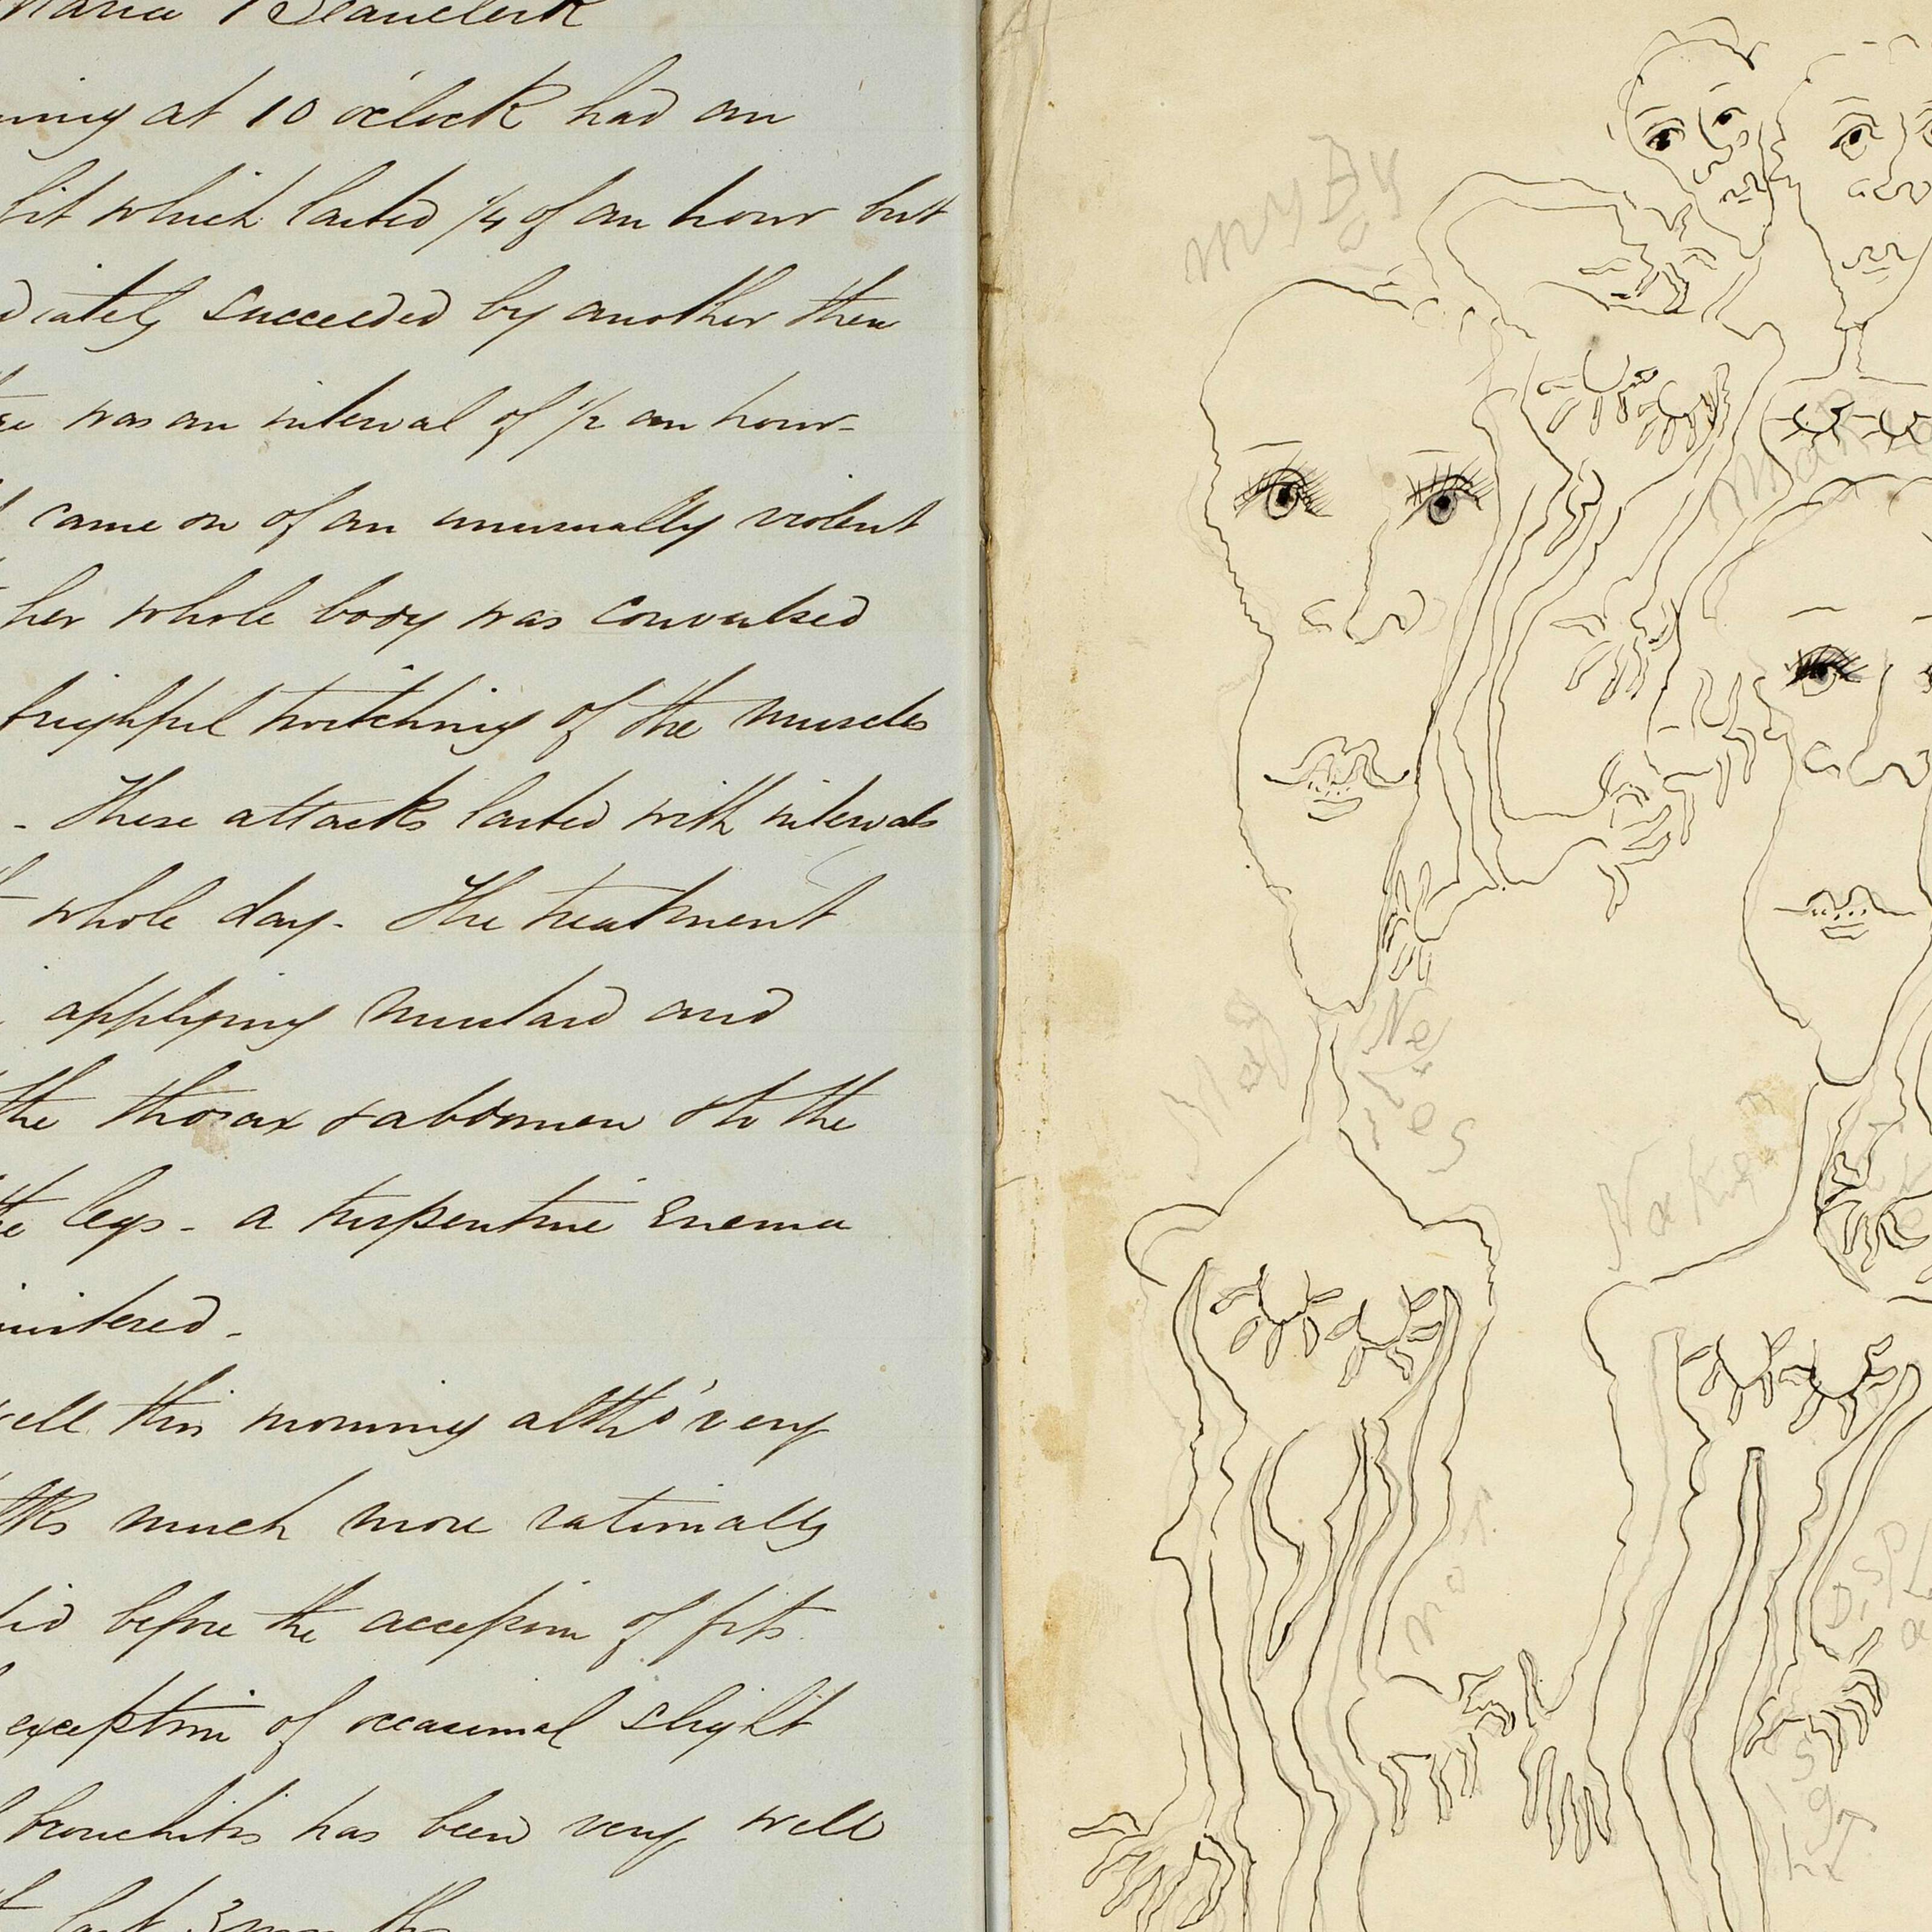 Maria Beauclerk
ning at 10 o'clock had an
fit which lasted 1/4 of an hour but
diately succeeded by another then
was an interval of 1/2 an hour-
came on of an unusually violent
her whole body was convulsed
frightful twitching of the muscles
- These attacks lasted with intervals
whole day. The treatment
applying mustard and
the thorax & abdomen & to the
the legs - a turpentine Enema
inistered.
well this morning altho' very
lks much more rationally
did before the accession of fits.
exception of occasional slight
bronchitis has been very well
last 3 months
my By
Mag
Ne
Naked
Not
DispLa
sighT